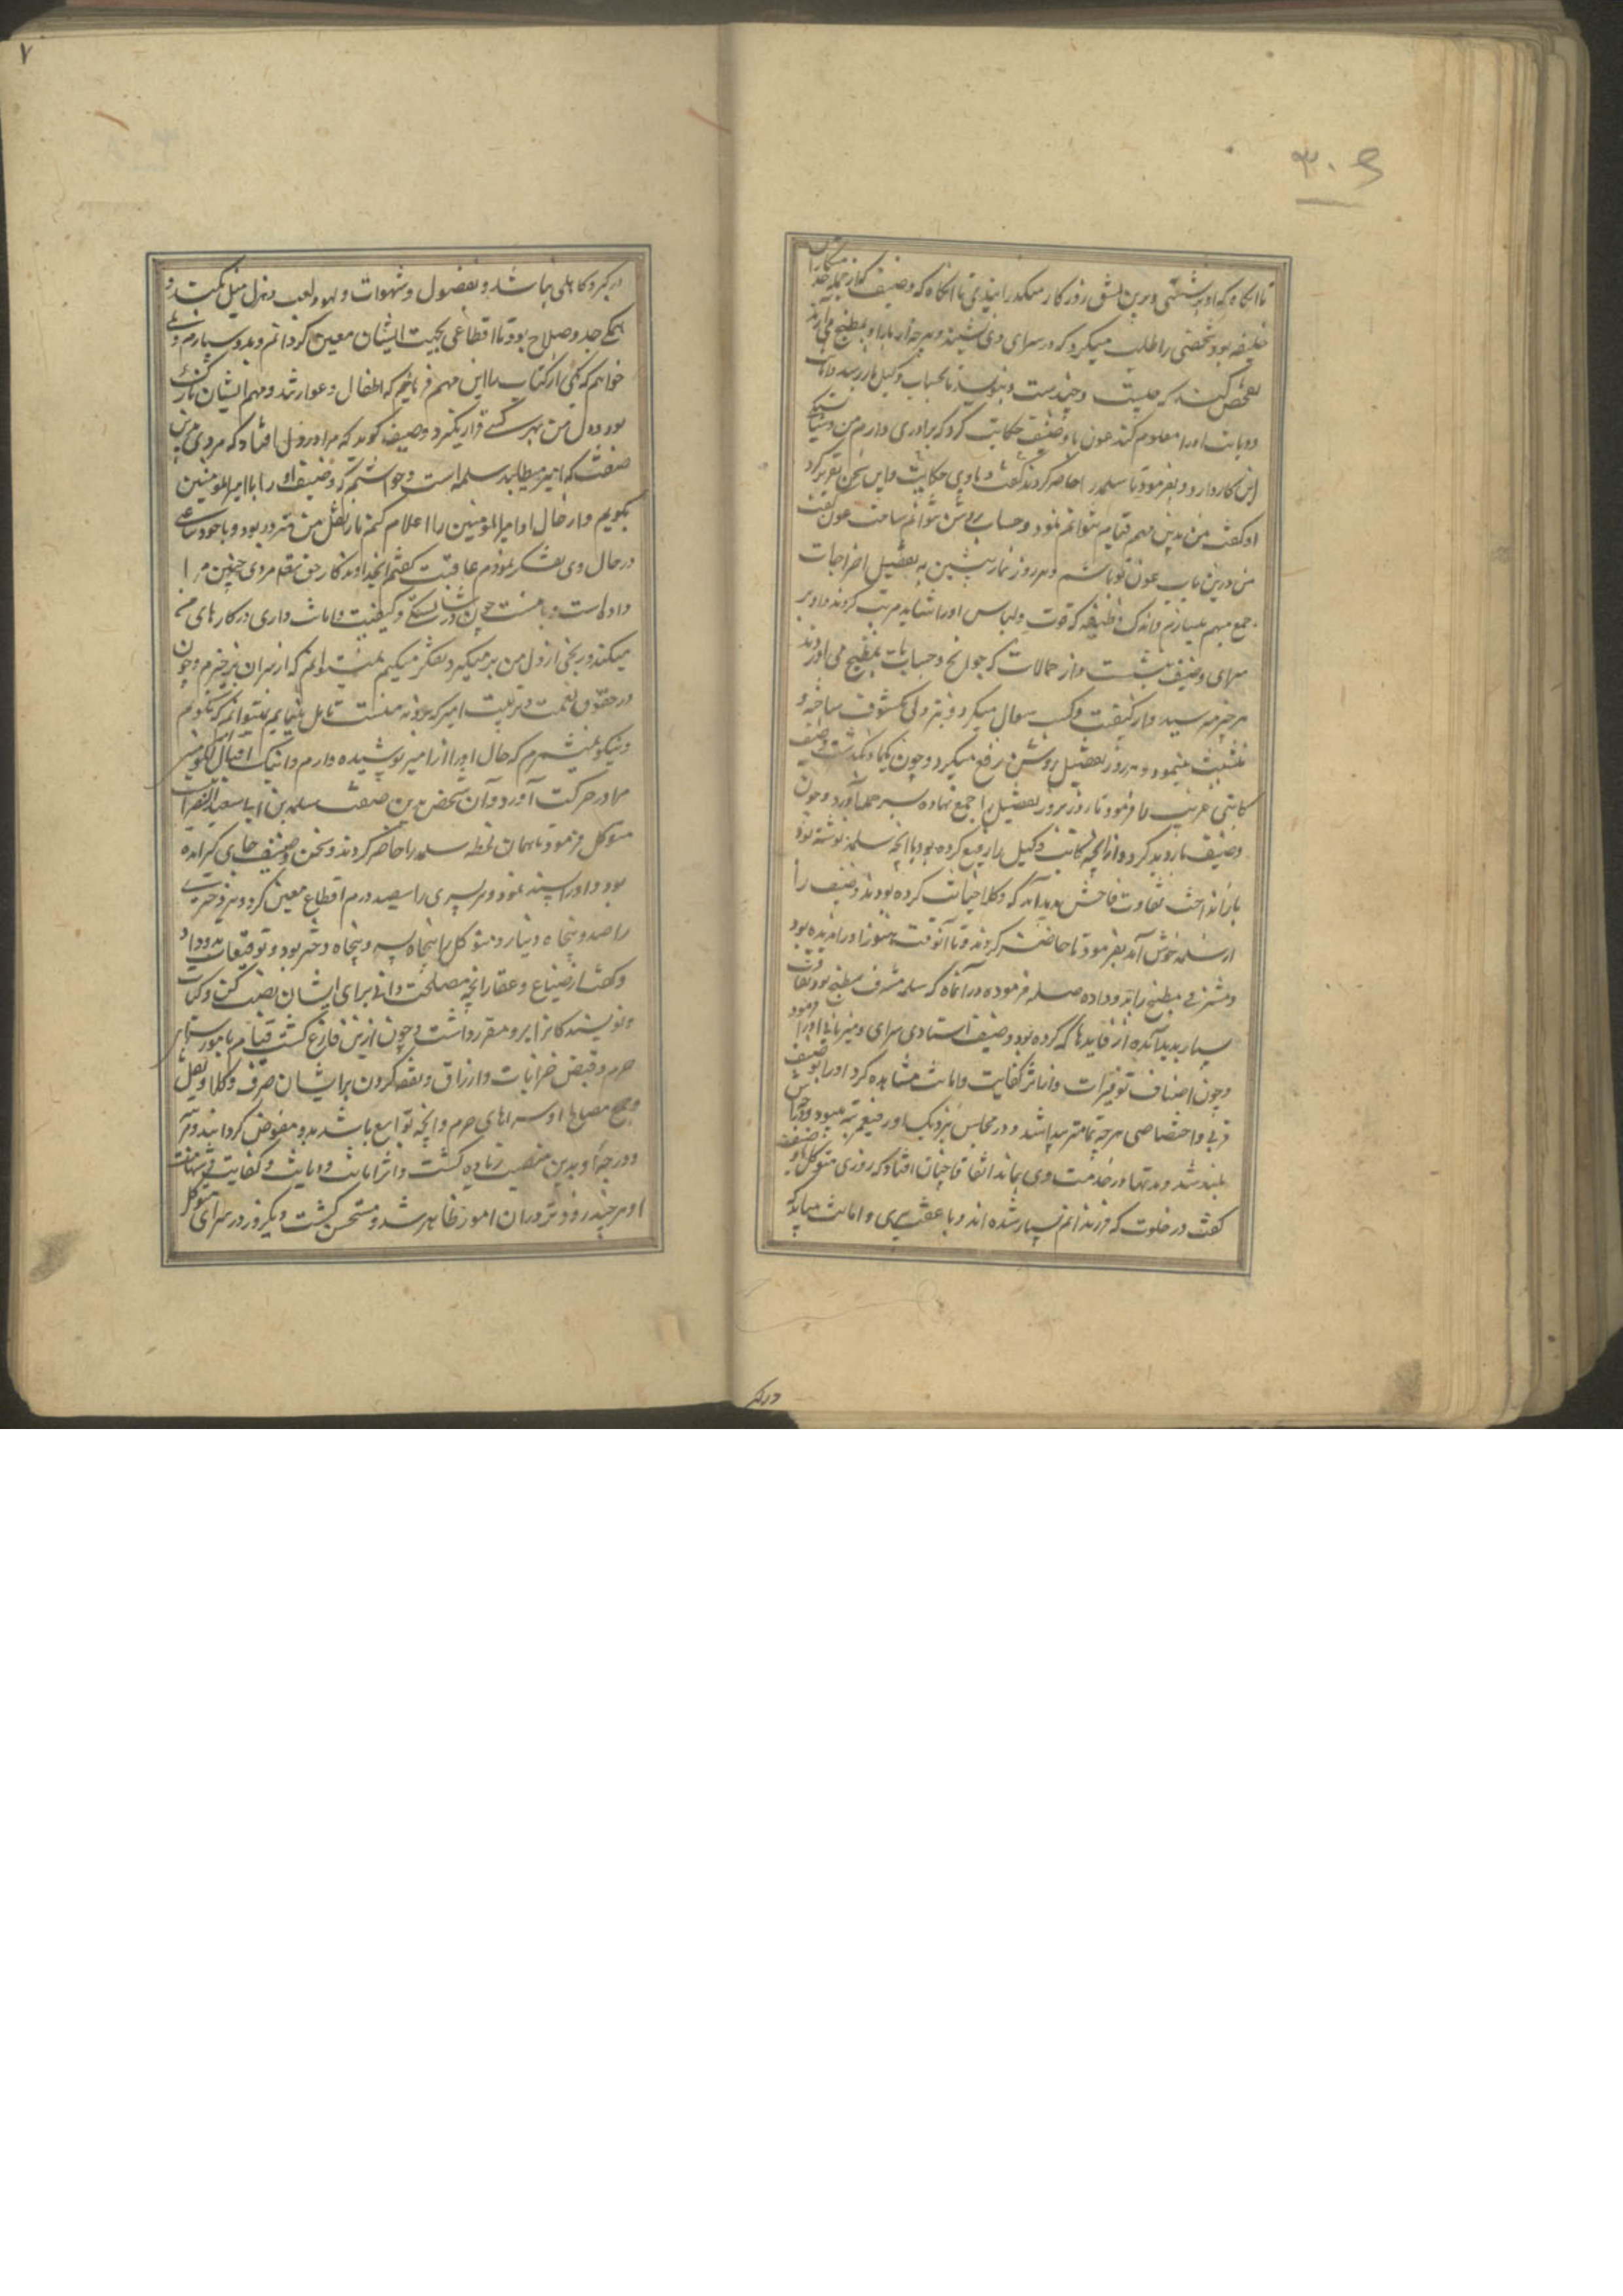 ۳۰۶
تا آنکاه که او برشتی و برین نسق روزکار میکذرانیذی تا آنکاه که وصیف که از جمله خدمتکاران
خلیفه بود شخصی را طلب میکرد که در سرای وی نشیند و هرچه از بازار بمطبخ می آرند
تفحص کند که چیست و چندست و بنویسد تا بحساب وکیل باز رسد و امانت
و دیانت او را معلوم کند عون با وصیف حکایت کرد که برادری دارم من و شایستکی
این کار دارد و بفرمود تا سلمه را حاضر کردند و با وی حکایت و این سخن تقریر کرد
او کفت من بدین مهم قیام نتوانم نمود و حساب روشن نتوانم ساخت عون کفت
من درین باب عون تو باشم و هر روز نماز پیشین به تفصیل اخراجات
جمع مهم بسازم و اندک وظیفه که قوت و لباس او را شاید مرتب کردند و او بر
سرای وصیف بنشست و از حمالات که حوایج و حسابات بمطبخ می آوردند
هر چیز می رسید و از کیفیت و کسب سوال میکرد و بتردلی مکشوف ساخته و
تثبت مینمود و هر روز تفصیل روشن رفع میکرد و چون یکماه بکذشت وصیف
کاتبی غریب را فرمود تا روز بروز تفصیل را جمع نهاده سر جمله آورد و چون
وصیف بازدید کرد و از آنچه کاتب وکیل را رفع کرده بود با آنچه سلمه نوشته بود
باز انداخت تفاوت فاحش پدید آمد که وکلا خیانت کرده بودند وصیف را
از سلمه خوش آمد بفرمود تا حاضر کردند و تا آنوقت هنوز او را ندیده بود
و مشرفی مطبخ را بدو داده صله فرمود در آن ماه که سلمه مشرف مطبخ بود تفاوت
بسیار پدید آمده از فایدها که کرده بود وصیف استادی سرای و میزبانی او را فرمود
و چون اصناف توفیرات و آثار کفایت و امانت مشاهده کرد او را بوصیف
قربی و اختصاصی هر چه تمامتر پیدا شد و در مجالس نزدیک او رفیع مرتبه میبود و درجاتش
بلند شد و مدتها در خدمت وی بماند اتفاقا چنان افتاد که روزی متوکل با وصیف
کفت در خلوت که فرزندانم بسیار شده اند و با عفت مردی و امانت میباید که
درکبر
۷
در کبر و کاهلی نباشد و بفضول و شهوات و لهو و لعب و هزل میل نکند و
همکی جد و صلاح بود تا اقطاعی بجهت ایشان معین کردانم و بدو سپارم و
خواهم که یکی از کتاب را این مهم فرمایم که اطفال و عوارتند و مهم ایشان نازک
بود و دل من بهر کسی قرار نکیرد وصیف کوید که مرا در دل افتاد که مردی بدین
صفت که امیر میطلبد سلمه است و خواستم که وصف او را با امیر المؤمنین
بکویم و از حال او امیر المؤمنین را اعلام کنم باز نقل من متردد بود و با خود ساعتی
در حال وی تفکر نمودم عاقبت کفتم ای خداوندکار حق تعالی مردی چنین مرا
داده است و با منست چون در شایستکی و کیفیت و امانت داری در کارهای من
میکند و ریخی از دل من برمیکیرد و تفکر میکنم نمیتوانم که از سر آن برخیزم و چون
در حقوق نعمت و تربیت امیر که بر ذمه منست تامل مینمایم نمیتوانم که نکویم
و نیکو نمیشمرم که حال او را از امیر پوشیده دارم و اینک اقبال امیر المؤمنین
مرا در حرکت آورد و آن شخص بدین صفت سلمه بن سعید النصرانیست
متوکل فرمود تا همان لحظه سلمه را حاضر کردند و سخن وصیف جای کیر آمده
بود و او را پسند نمود و هر پسری را سیصد درم اقطاع معین کرد و هر دختری
را صد و پنجاه دینار و متوکل را پنجاه پسر و پنجاه دختر بود و توقیعات بدو داد
و کفت از ضیاع و عقار آنچه مصلحت دانی برای ایشان نصب کن و کتاب
و نویسندکان را برو مقرر داشت و چون ازین فارغ کشت قیام بامور سایر
حرم و قبض خرابات و ارزاق و نفقه کردن بر ایشان صرف وکلا و نقل
و جمع مصالح و سراهای حرم و آنچه توابع باشد بدو مفوض کردانید و مرتبه
و درجه او بدین منصب زیاده کشت و اثر امانت و دیانت و کفایت و شهامت
او هر چند زودتر در آن امور ظاهر شد و مستحسن کشت و یکروز در سرای متوکل